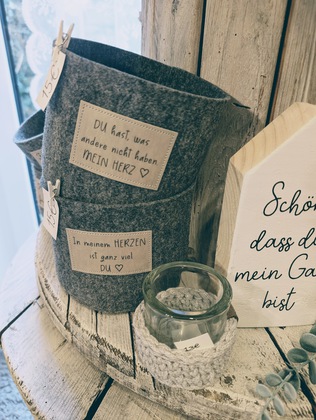 DU hast, was
andere nicht haben
MEIN HERZ ♡
In meinem HERZEN
ist ganz viel
DU ♡
Schön
dass du
mein Ga
bist
15€